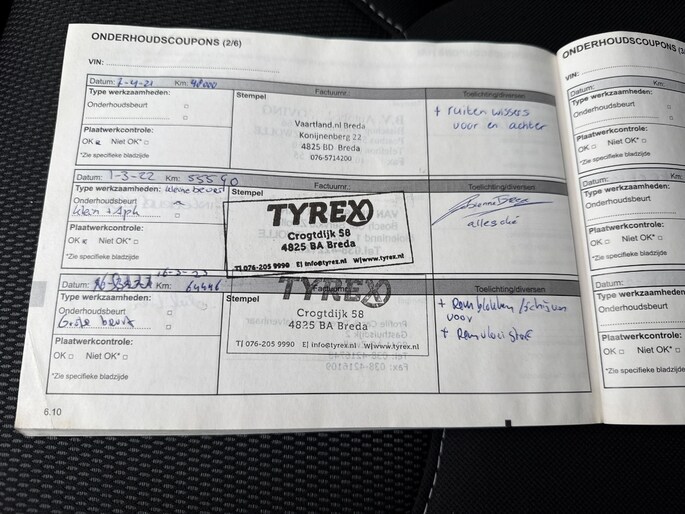 ONDERHOUDSCOUPONS (2/6)
VIN:
Datum: 7-4-21 Km: 48000
Factuurnr.:
Toelichting/diversen
Type werkzaamheden:
Onderhoudsbeurt
Plaatwerkcontrole:
OK Niet OK*
*Zie specifieke bladzijde
Stempel
Vaartland.nl Breda
Konijnenberg 22
4825 BD Breda
076-5714200
+ ruiten wissers
voor en achter
Datum: 1-3-22 Km: 55590
Factuurnr.:
Toelichting/diversen
Type werkzaamheden: kleine beurt
Onderhoudsbeurt
klein + Apk
Plaatwerkcontrole:
OK Niet OK*
*Zie specifieke bladzijde
Stempel
TYREX
Crogtdijk 58
4825 BA Breda
T| 076-205 9990 E| info@tyrex.nl W| www.tyrex.nl
16-3-23
Datum: Km: 64446
Toelichting/diversen
Type werkzaamheden:
Onderhoudsbeurt
Grote beurt
Plaatwerkcontrole:
OK Niet OK*
*Zie specifieke bladzijde
Stempel
TYREX
Crogtdijk 58
4825 BA Breda
T| 076-205 9990 E| info@tyrex.nl W| www.tyrex.nl
+ Remblokken/schijven
voor
+ Remvloeistof
6.10
ONDERHOUDSCOUPONS (3/
VIN:
Datum: Km:
Type werkzaamheden:
Onderhoudsbeurt
Plaatwerkcontrole:
OK Niet OK*
*Zie specifieke bladzijde
Datum: Km:
Type werkzaamheden:
Onderhoudsbeurt
Plaatwerkcontrole:
OK Niet OK*
*Zie specifieke bladzijde
Datum: Km:
Type werkzaamheden:
Onderhoudsbeurt
Plaatwerkcontrole:
OK Niet OK*
*Zie specifieke bladzijde